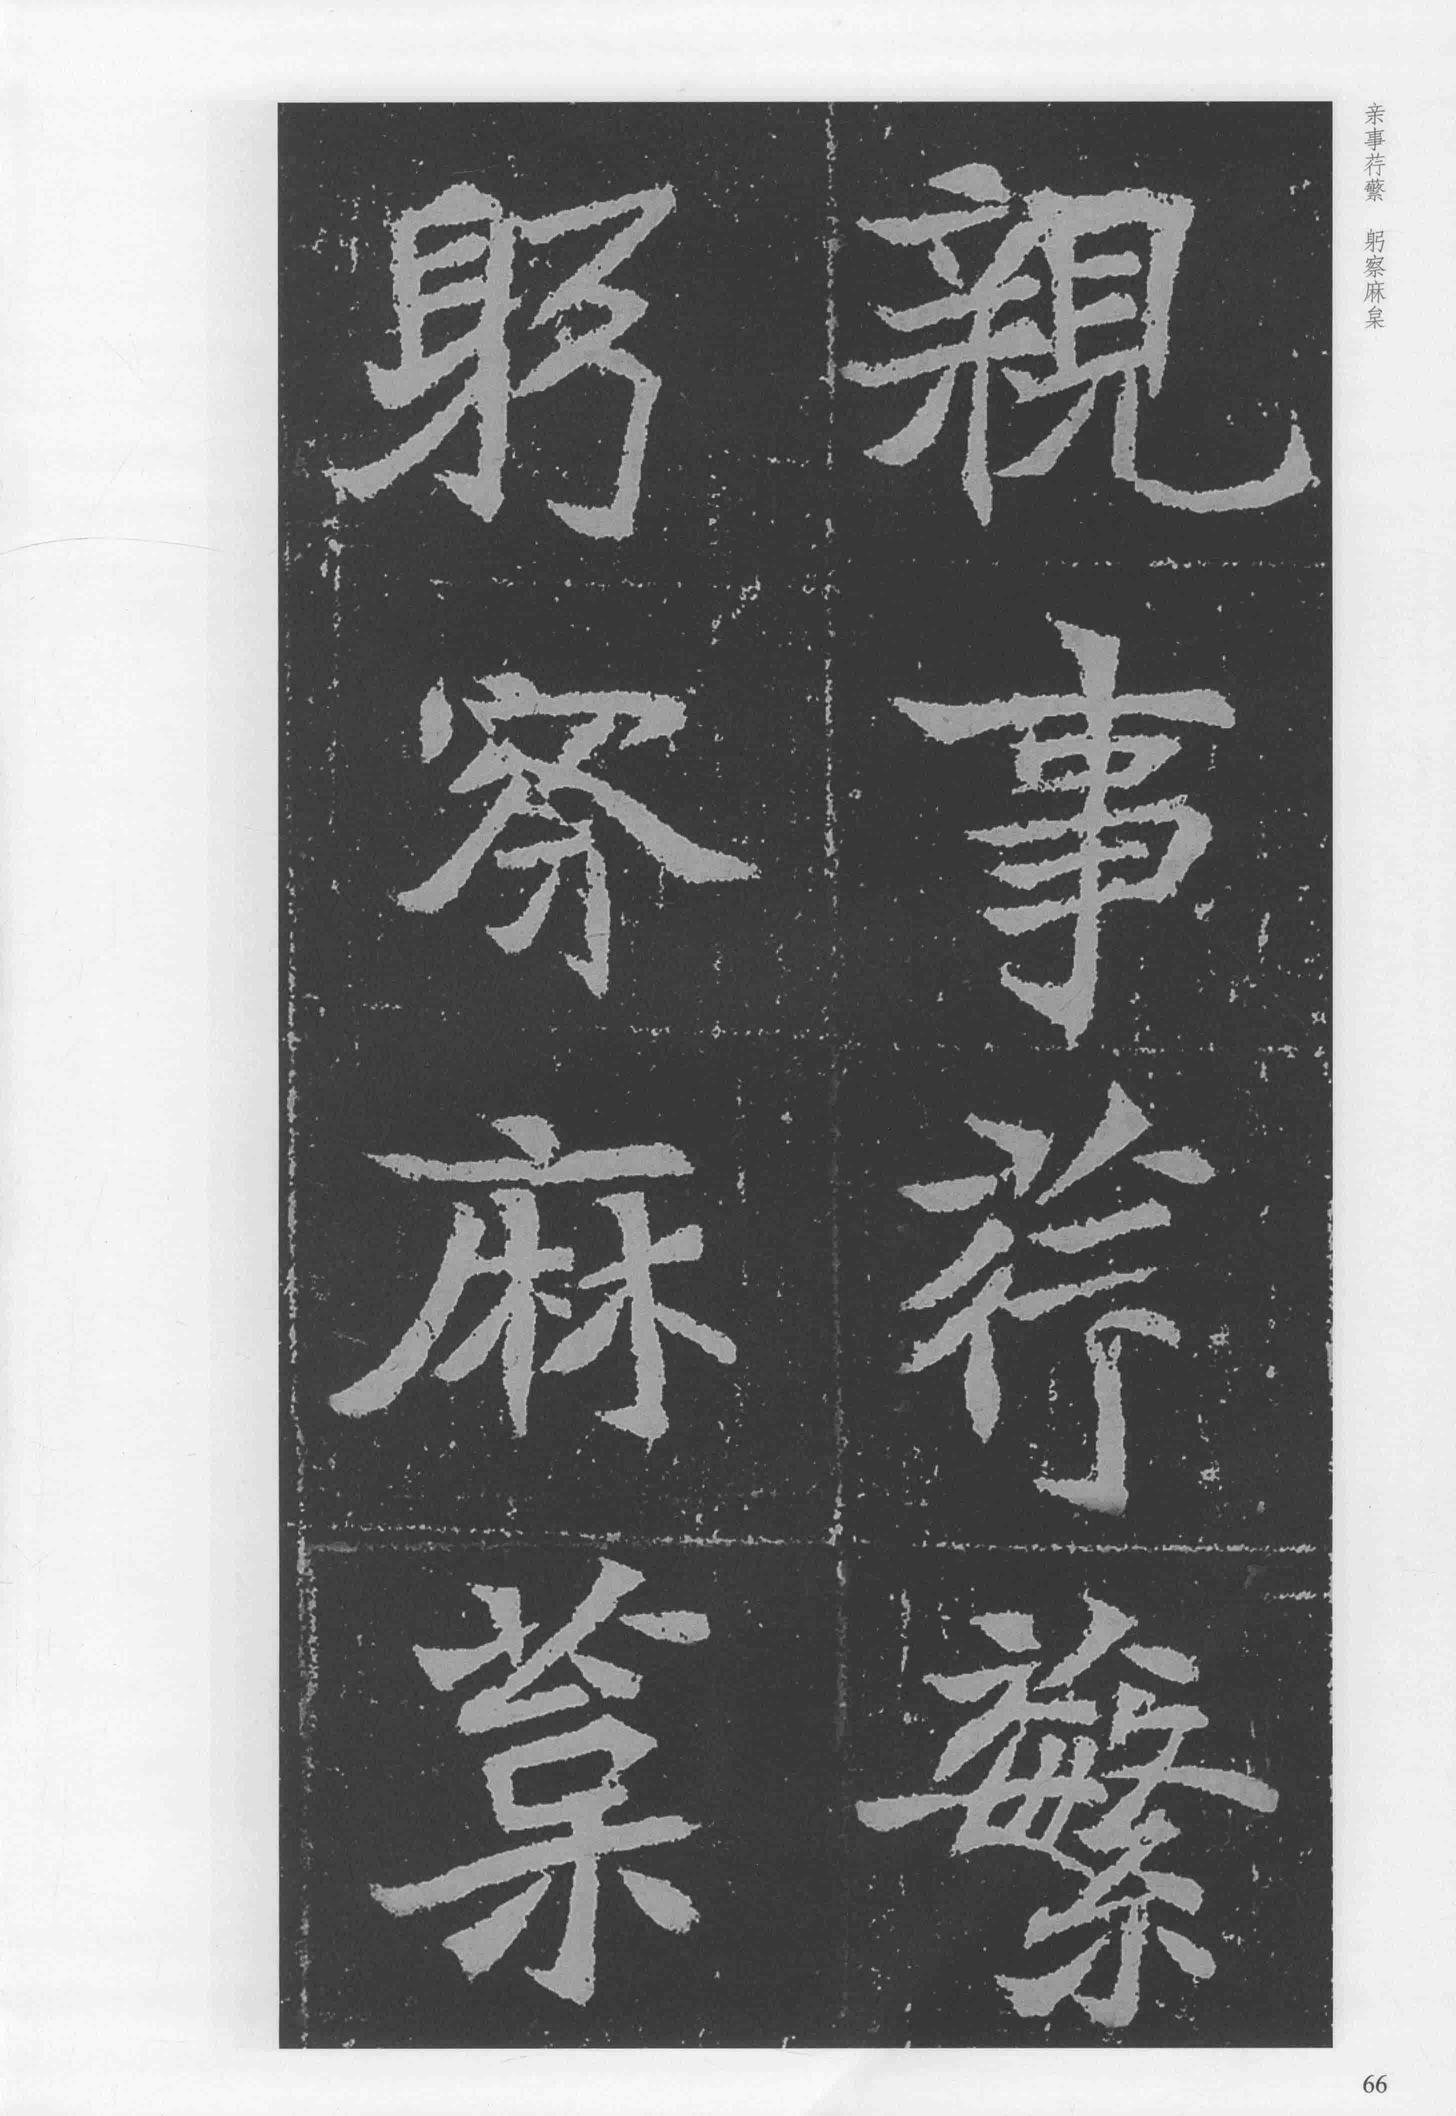 亲事荇蘩 躬察麻枲
親事荇蘩
躬察麻菒
66